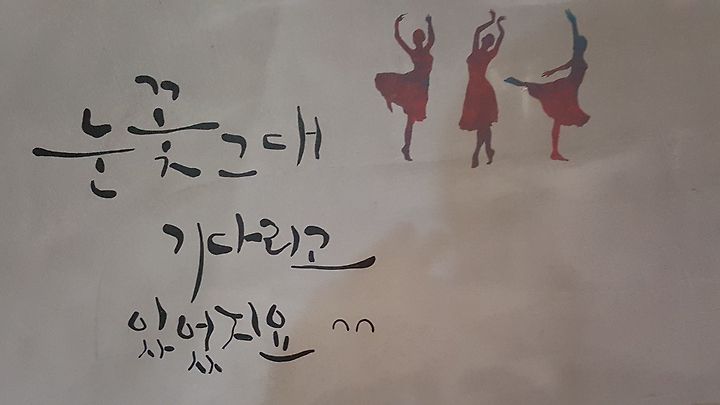 눈꽃그대
기다리고
있었지요 ^^